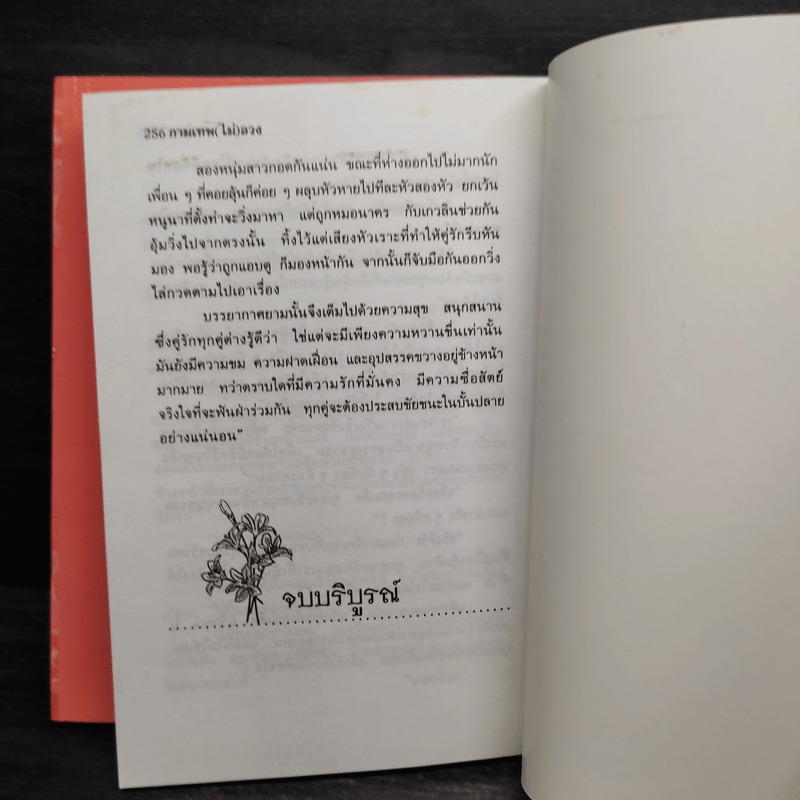 256 กามเทพ(ไม่)ลวง
สองหนุ่มสาวกอดกันแน่น ขณะที่ห่างออกไปไม่มากนัก
เพื่อน ๆ ที่คอยลุ้นก็ค่อย ๆ ผลุบหัวหายไปทีละหัวสองหัว ยกเว้น
หนูนาที่ตั้งท่าจะวิ่งมาหา แต่ถูกหมอนาคร กับเกวลินช่วยกัน
อุ้มวิ่งไปจากตรงนั้น ทิ้งไว้แต่เสียงหัวเราะที่ทำให้คู่รักรีบหัน
มอง พอรู้ว่าถูกแอบดู ก็มองหน้ากัน จากนั้นก็จับมือกันออกวิ่ง
ไล่กวดตามไปเอาเรื่อง
บรรยากาศยามนั้นจึงเต็มไปด้วยความสุข สนุกสนาน
ซึ่งคู่รักทุกคู่ต่างรู้ดีว่า ใช่แต่จะมีเพียงความหวานชื่นเท่านั้น
มันยังมีความขม ความฝาดเฝื่อน และอุปสรรคขวางอยู่ข้างหน้า
มากมาย ทว่าตราบใดที่มีความรักที่มั่นคง มีความซื่อสัตย์
จริงใจที่จะฟันฝ่าร่วมกัน ทุกคู่จะต้องประสบชัยชนะในบั้นปลาย
อย่างแน่นอน”
จบบริบูรณ์